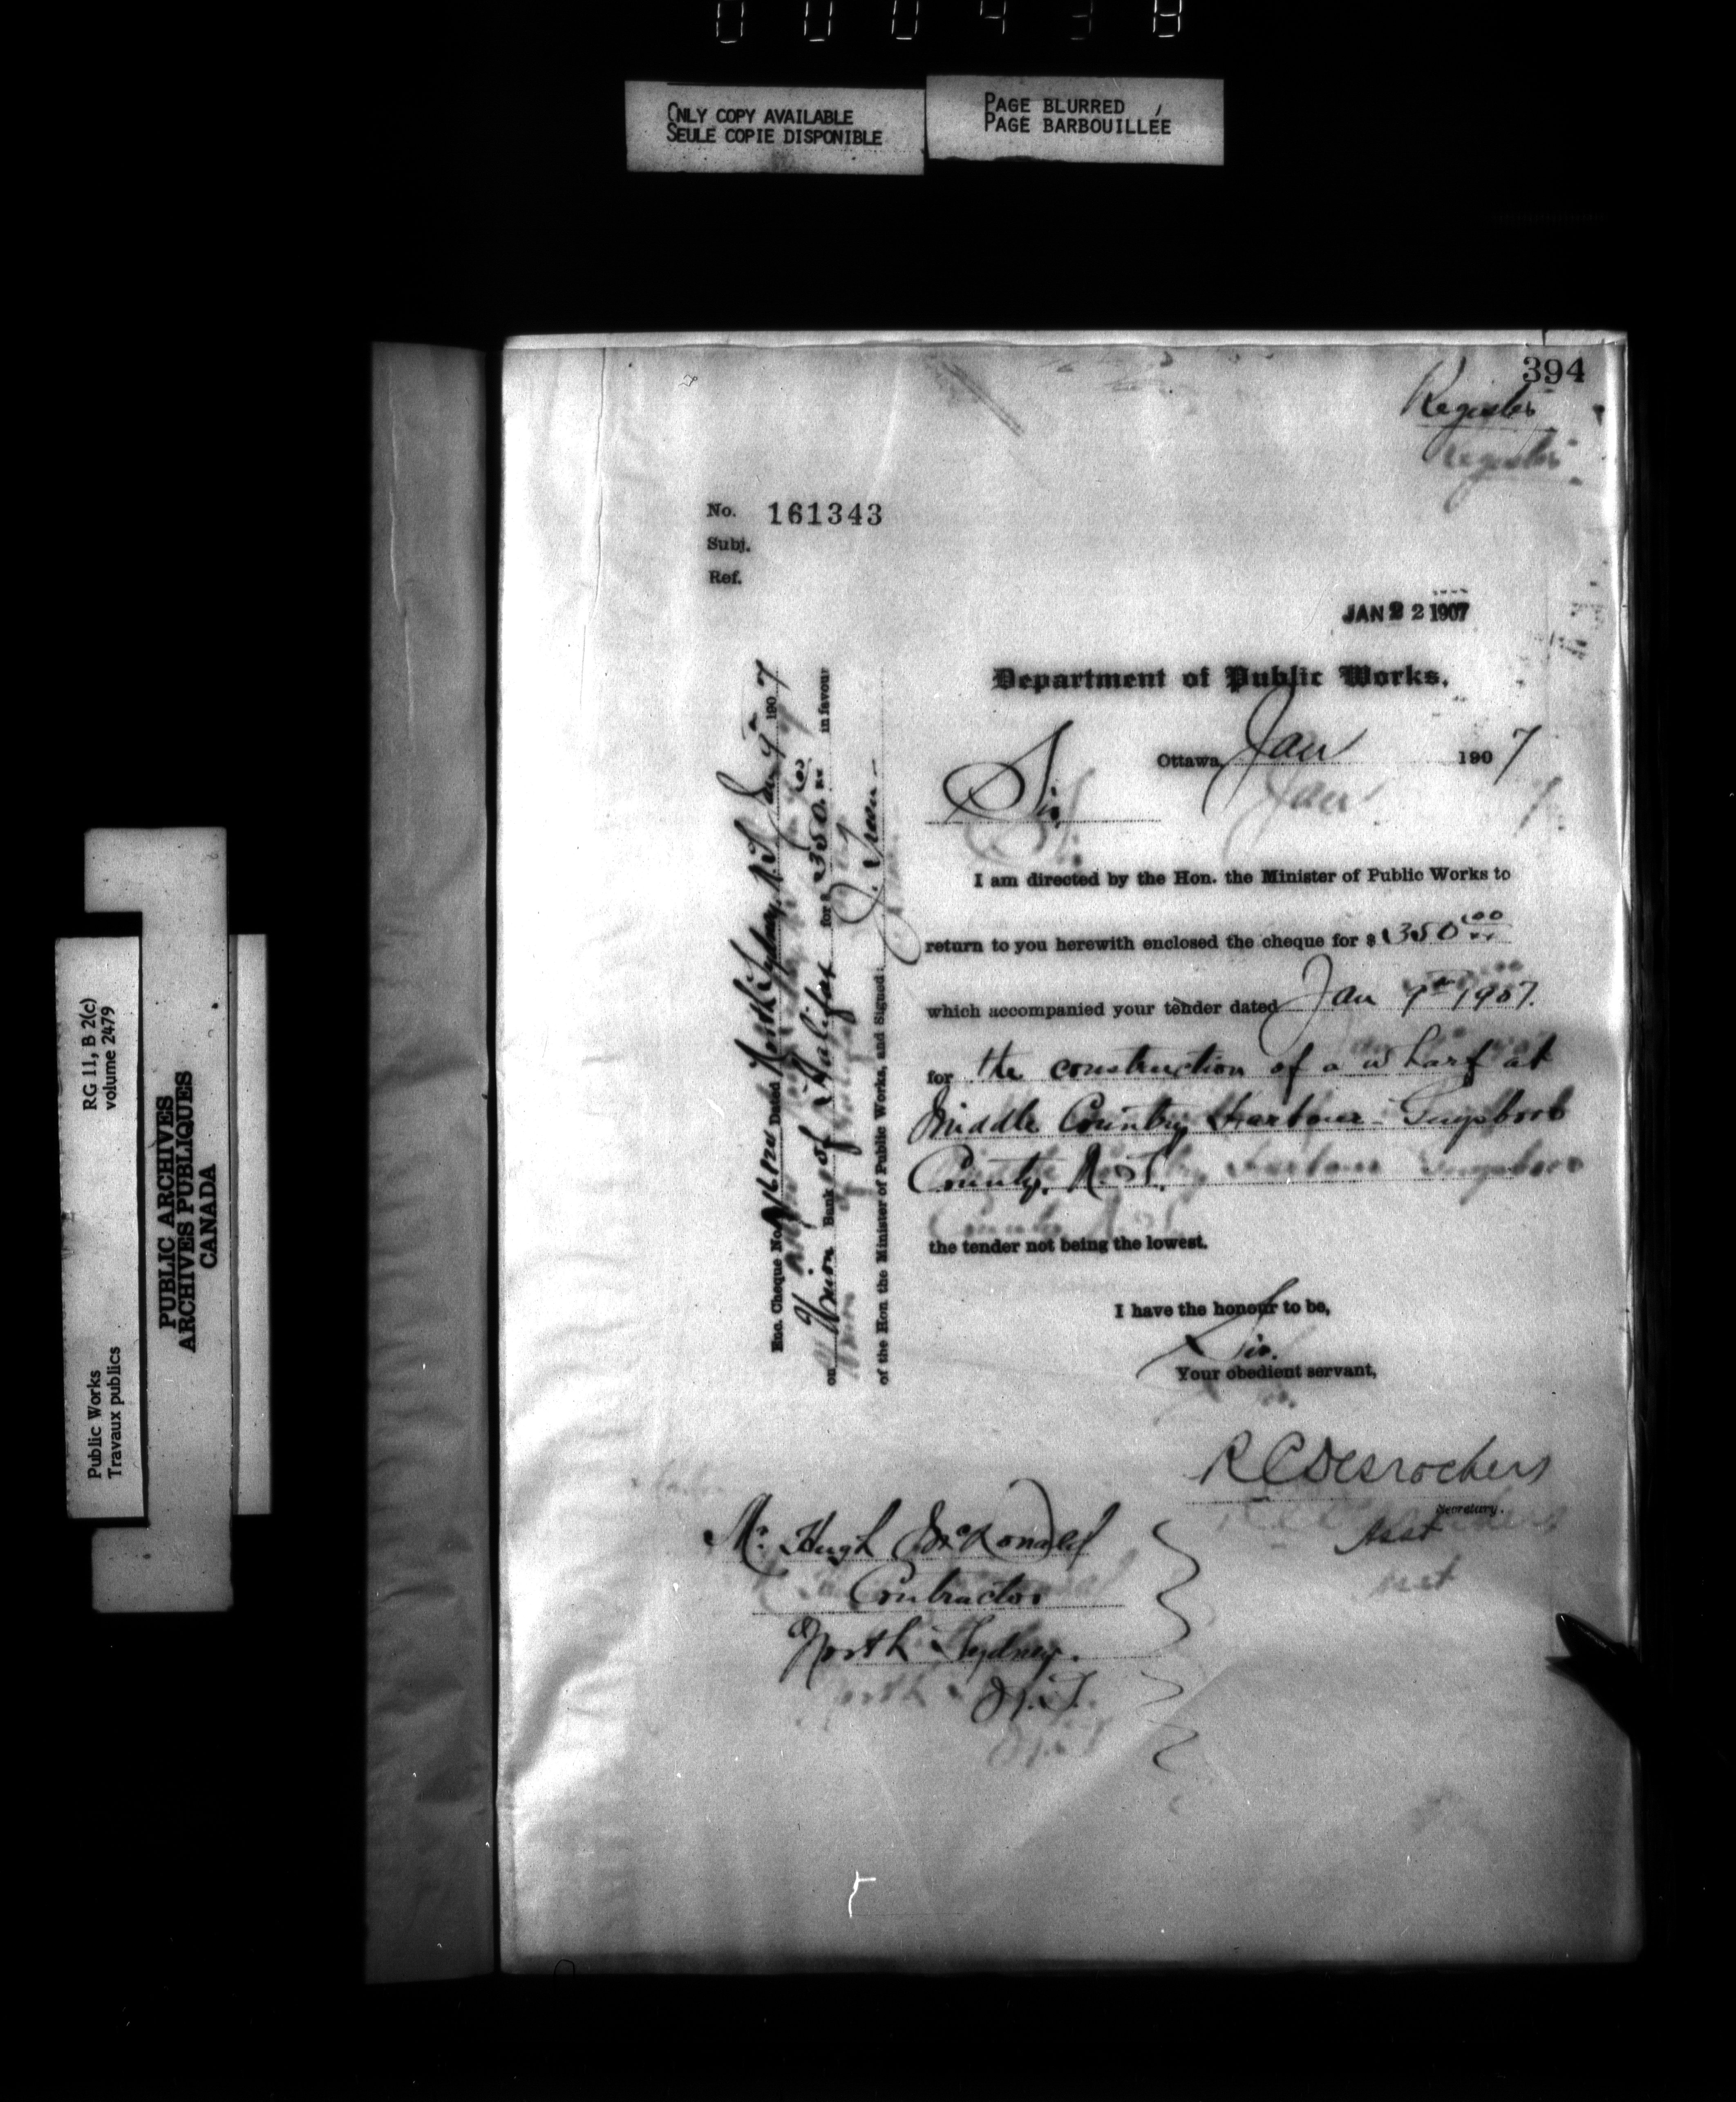 000438
ONLY COPY AVAILABLE
SEULE COPIE DISPONIBLE
PAGE BLURRED
PAGE BARBOUILLÉE
394
Register
No. 161343
Subj.
Ref.
JAN 22 1907
Department of Public Works.
Ottawa, Jan 1907
Sir,
I am directed by the Hon. the Minister of Public Works to
return to you herewith enclosed the cheque for $ 350.00
which accompanied your tender dated Jan 9th 1907.
for the construction of a wharf at
Middle Country Harbour - Guysboro
County, N.S.
the tender not being the lowest.
I have the honour to be,
Sir.
Your obedient servant,
R C Desrochers
Secretary.
Asst
Mr. Hugh McDonald
Contractor
North Sydney.
N.S.
Enc. Cheque No. Dated North Sydney, N.S. Jan 9 1907
on Union Bank of Halifax for $ 350.00 in favour
of the Hon the Minister of Public Works, and Signed:
RG 11, B 2(c)
volume 2479
Public Works
Travaux publics
PUBLIC ARCHIVES
ARCHIVES PUBLIQUES
CANADA